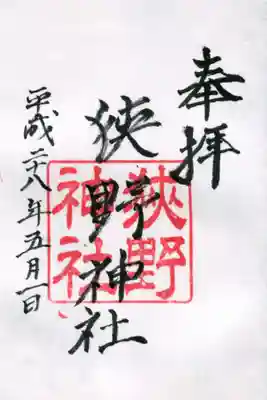 奉拝
狭野神社
狹野
神社
平成二十八年五月一日